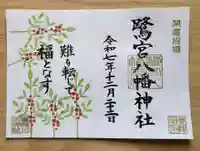 開運招福
鷺宮八幡神社
令和七年十二月二十三日
難を転じて
福となす